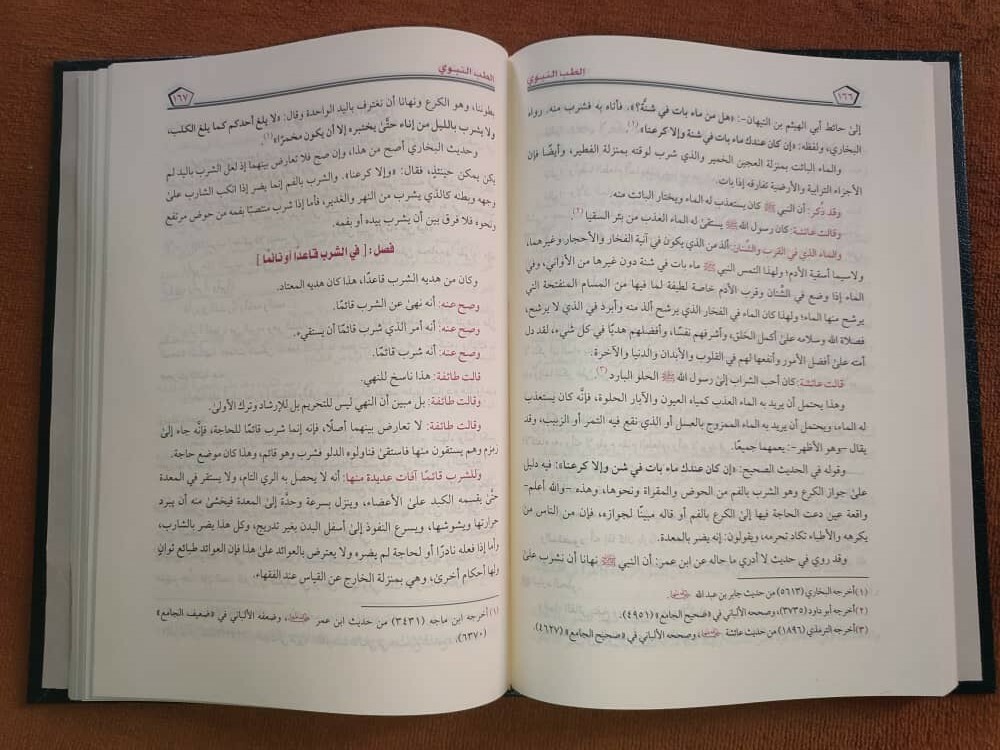 الطب النبوي
١٦٦
إلىٰ حائط أبي الهيثم بن التيهان-: «هل من ماء بات في شنةٌ؟». فأتاه به فشرب منه. رواه
البخاري، ولفظه: «إن كان عندك ماء بات في شنة وإلا كرعنا»(١).
والماء البائت بمنزلة العجين الخمير والذي شرب لوقته بمنزلة الفطير، وأيضًا فإن
الأجزاء الترابية والأرضية تفارقه إذا بات.
وقد ذُكر: أن النبي ﷺ كان يستعذب له الماء ويختار البائت منه.
وقالت عائشة: كان رسول الله ﷺ يستقىٰ له الماء العذب من بئر السقيا(٢).
والماء الذي في القرب والشنان ألذ من الذي يكون في آنية الفخار والأحجار وغيرهما،
ولاسيما أسقية الأدم؛ ولهذا التمس النبي ﷺ ماء بات في شنة دون غيرها من الأواني، وفي
الماء إذا وضع في الشنان وقرب الأدم خاصة لطيفة لما فيها من المسام المنفتحة التي
يرشح منها الماء؛ ولهذا كان الماء في الفخار الذي يرشح ألذ منه وأبرد في الذي لا يرشح،
فصلاة الله وسلامه علىٰ أكمل الخلق، وأشرفهم نفسًا، وأفضلهم هديًا في كل شيء، لقد دل
أمته علىٰ أفضل الأمور وأنفعها لهم في القلوب والأبدان والدنيا والآخرة.
قالت عائشة: كان أحب الشراب إلىٰ رسول الله ﷺ الحلو البارد(٣).
وهذا يحتمل أن يريد به الماء العذب كمياه العيون والآبار الحلوة، فإنَّه كان يستعذب
له الماء، ويحتمل أن يريد به الماء الممزوج بالعسل أو الذي نقع فيه التمر أو الزبيب، وقد
يقال -وهو الأظهر-: يعمهما جميعًا.
وقوله في الحديث الصحيح: «إن كان عندك ماء بات في شن وإلا كرعنا»: فيه دليل
علىٰ جواز الكرع وهو الشرب بالفم من الحوض والمقراة ونحوها، وهذه -والله أعلم-
واقعة عين دعت الحاجة فيها إلىٰ الكرع بالفم أو قاله مبينًا لجوازه، فإن من الناس من
يكرهه والأطباء تكاد تحرمه، ويقولون: إنه يضر بالمعدة.
وقد روي في حديث لا أدري ما حاله عن ابن عمر: أن النبي ﷺ نهانا أن نشرب علىٰ
(١) أخرجه البخاري (٥٦١٣) من حديث جابر بن عبد الله
(٢) أخرجه أبو داود (٣٧٣٥)، وصححه الألباني في «صحيح الجامع» (٤٩٥١).
(٣) أخرجه الترمذي (١٨٩٦) من حديث عائشة، وصححه الألباني في «صحيح الجامع» (٤٦٢٧).
الطب النبوي
١٦٧
بطوننا، وهو الكرع ونهانا أن نغترف باليد الواحدة وقال: «لا يلغ أحدكم كما يلغ الكلب،
ولا يشرب بالليل من إناء حتَّىٰ يختبره إلا أن يكون مخمرًا»(١).
وحديث البخاري أصح من هذا، وإن صح فلا تعارض بينهما إذ لعل الشرب باليد لم
يكن يمكن حينئذٍ، فقال: «وإلا كرعنا». والشرب بالفم إنما يضر إذا انكب الشارب علىٰ
وجهه وبطنه كالذي يشرب من النهر والغدير، فأما إذا شرب منتصبًا بفمه من حوض مرتفع
ونحوه فلا فرق بين أن يشرب بيده أو بفمه.
فصل: [ في الشرب قاعدًا أو قائمًا ]
وكان من هديه الشرب قاعدًا، هذا كان هديه المعتاد.
وصح عنه: أنه نهىٰ عن الشرب قائمًا.
وصح عنه: أنه أمر الذي شرب قائمًا أن يستقيء.
وصح عنه: أنه شرب قائمًا.
قالت طائفة: هذا ناسخ للنهي.
وقالت طائفة: بل مبين أن النهي ليس للتحريم بل للإرشاد وترك الأولىٰ.
وقالت طائفة: لا تعارض بينهما أصلًا، فإنه إنما شرب قائمًا للحاجة، فإنَّه جاء إلىٰ
زمزم وهم يستقون منها فاستقىٰ فناولوه الدلو فشرب وهو قائم، وهذا كان موضع حاجة.
وللشرب قائمًا آفات عديدة منها: أنه لا يحصل به الري التام، ولا يستقر في المعدة
حتَّىٰ يقسمه الكبد علىٰ الأعضاء، وينزل بسرعة وحدَّة إلىٰ المعدة فيخشىٰ منه أن يبرد
حرارتها ويشوشها، ويسرع النفوذ إلىٰ أسفل البدن بغير تدريج، وكل هذا يضر بالشارب،
وأما إذا فعله نادرًا أو لحاجة لم يضره ولا يعترض بالعوائد علىٰ هذا فإن العوائد طبائع ثوانٍ
ولها أحكام أخرىٰ، وهي بمنزلة الخارج عن القياس عند الفقهاء.
(١) أخرجه ابن ماجه (٣٤٣١) من حديث ابن عمر، وضعفه الألباني في «ضعيف الجامع»
(٦٣٧٠).